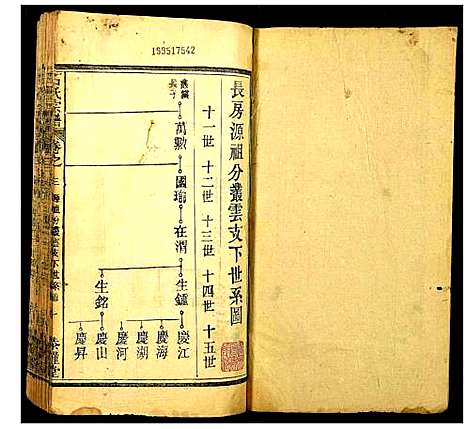 199517542
長房源祖分叢雲支下世系圖
十一世 十二世 十三世 十四世 十五世
長子
萬勲 國瑜 在渭 生鑪 慶江
慶海
慶湖
慶河
生銘 慶山
慶昇
氏宗譜 卷之三 源祖分叢雲支下世系圖